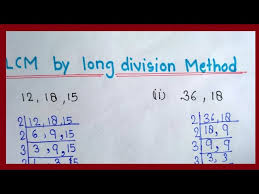 LCM by long division Method
12, 18, 15
2 | 12, 18, 15
2 | 6, 9, 15
3 | 3, 9, 15
(ii) 36, 18
2 | 36, 18
2 | 18, 9
3 | 9, 9
3 | 3, 3